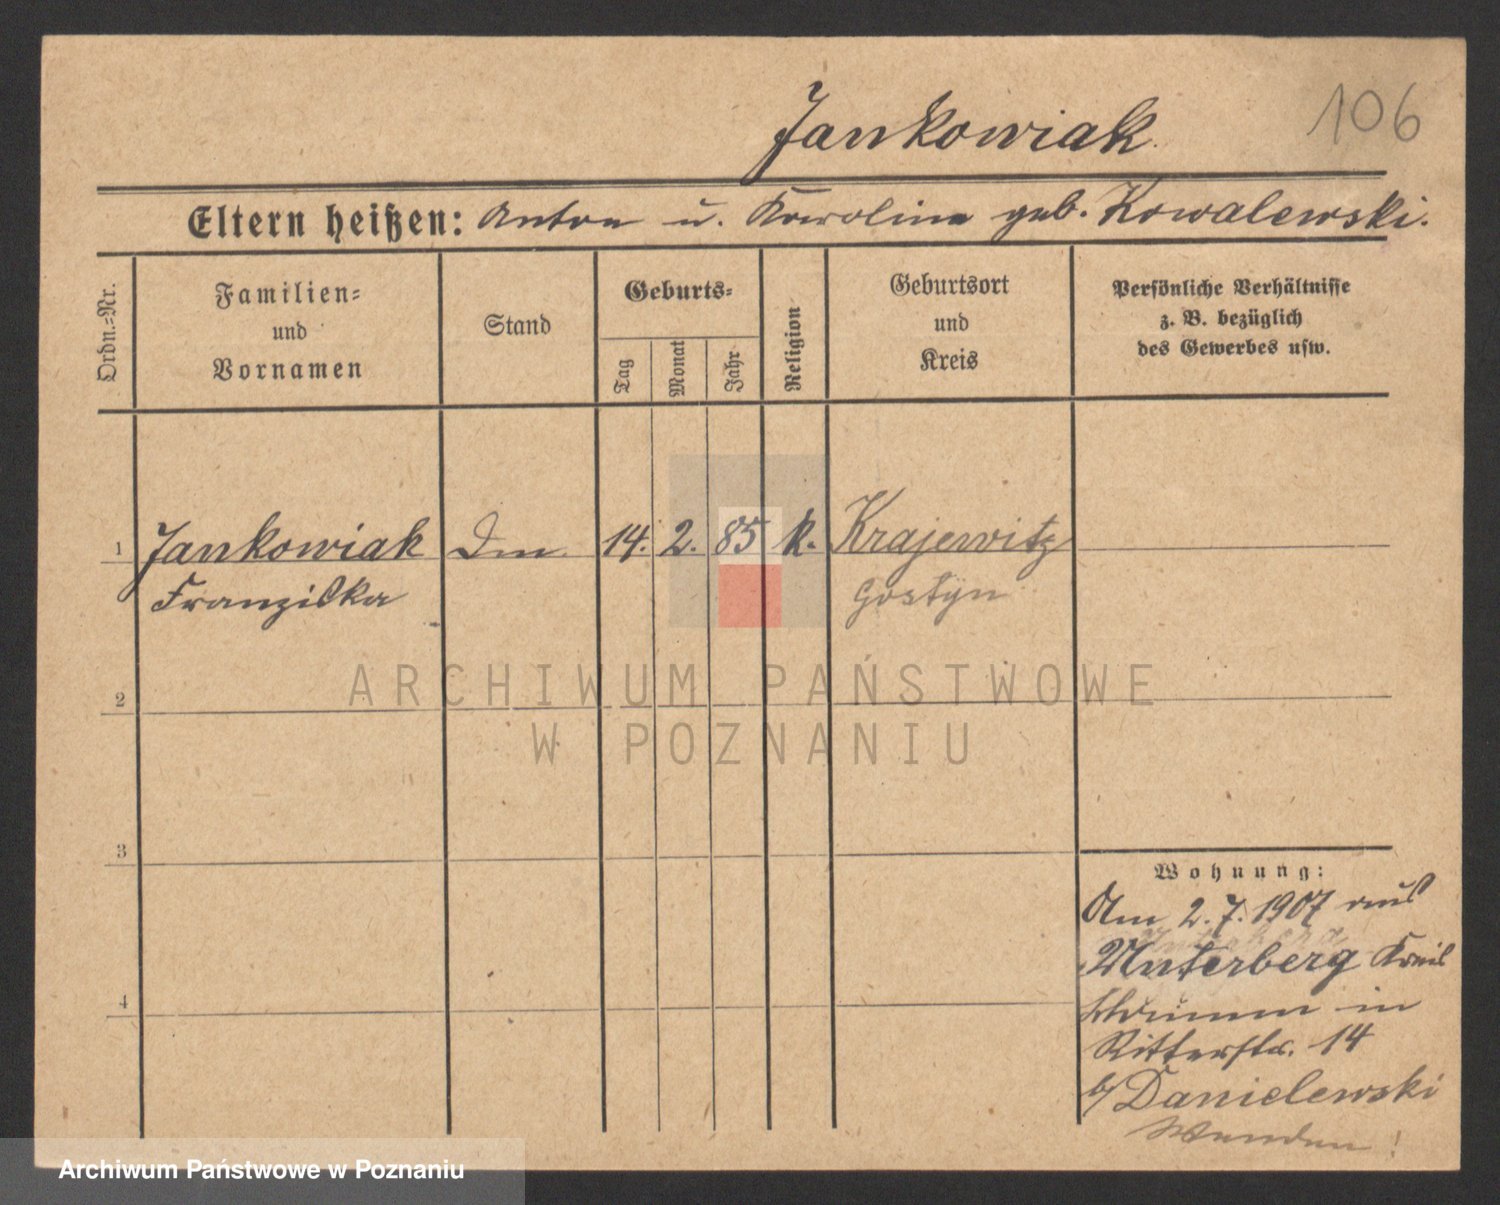 106
Jankowiak.
Eltern heißen: Anton u. Karolina geb. Kowalewski.
Ordn.=Nr.
Familien=
und
Vornamen
Stand
Geburts=
Tag
Monat
Jahr
Religion
Geburtsort
und
Kreis
Persönliche Verhältnisse
z. B. bezüglich
des Gewerbes usw.
1
Jankowiak
14. 2. 85 k. Krajewitz
Franziska
Gostyn
2
3
4
Wohnung:
Am 2. 7. 1907 aus
Unterberg Kreis
Schrimm in
Ritterstr. 14
b/ Danielewski
Wenden!
ARCHIWUM PAŃSTWOWE
W POZNANIU
Archiwum Państwowe w Poznaniu